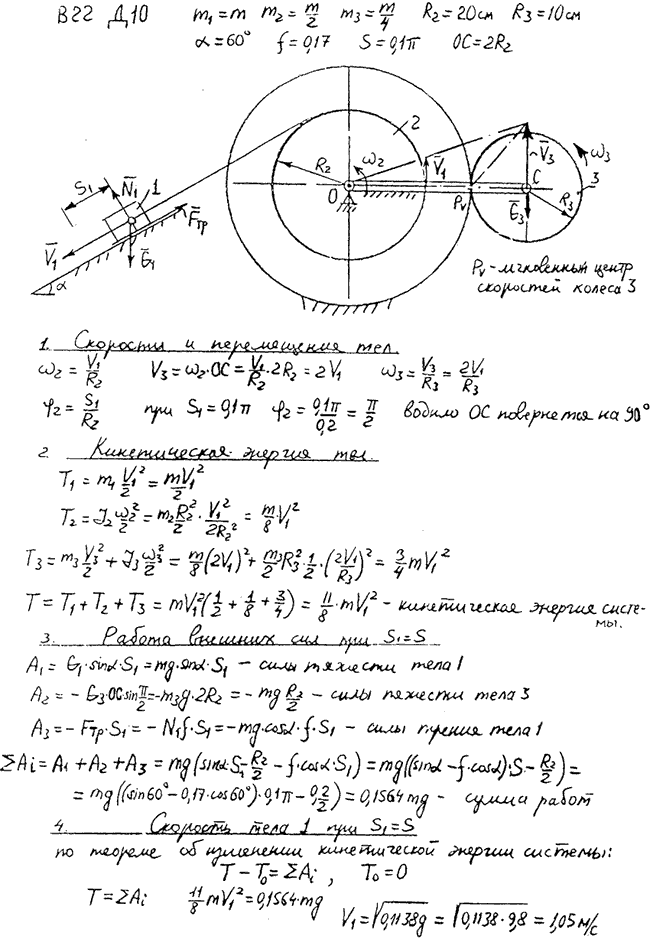 В22 Д10 m₁=m m₂=m/2 m₃=m/4 R₂=20см R₃=10см
α=60° f=0,17 S=0,1π OC=2R₂
S₁ N̄₁ 1 F̄тр V̄₁ Ḡ₁ α
R₂ ω₂ 2 V̄₁ O Pv
V̄₃ ω₃ 3 C Ḡ₃ R₃
Pv - мгновенный центр
скоростей колеса 3
1. Скорости и перемещения тел
ω₂=V₁/R₂ V₃=ω₂·OC=V₁/R₂·2R₂=2V₁ ω₃=V₃/R₃=2V₁/R₃
φ₂=S₁/R₂ при S₁=0,1π φ₂=0,1π/0,2=π/2 водило OC повернется на 90°
2. Кинетическая энергия тел.
T₁=m₁V₁²/2=mV₁²/2
T₂=J₂ω₂²/2=m₂R₂²/2·V₁²/2R₂²=m/8·V₁²
T₃=m₃V₃²/2+J₃ω₃²/2=m/8(2V₁)²+m₃/2R₃²·1/2·(2V₁/R₃)²=3/4mV₁²
T=T₁+T₂+T₃=mV₁²(1/2+1/8+3/4)=11/8·mV₁² - кинетическая энергия систе-
мы.
3. Работа внешних сил при S₁=S
A₁=G₁·sinα·S₁=mg·sinα·S₁ - силы тяжести тела 1
A₂=-G₃·OCsinπ/2=-m₃g·2R₂=-mgR₂/2 - силы тяжести тела 3
A₃=-Fтр·S₁=-N₁f·S₁=-mg·cosα·f·S₁ - силы трения тела 1
ΣAi=A₁+A₂+A₃=mg(sinα·S₁-R₂/2-f·cosα·S₁)=mg((sinα-f·cosα)·S-R₂/2)=
=mg((sin60°-0,17·cos60°)·0,1π-0,2/2)=0,1564mg - сумма работ
4. Скорость тела 1 при S₁=S
по теореме об изменении кинетической энергии системы:
T-T₀=ΣAi, T₀=0
T=ΣAi 11/8mV₁²=0,1564·mg V₁=√0,1138g=√0,1138·9,8=1,05м/с